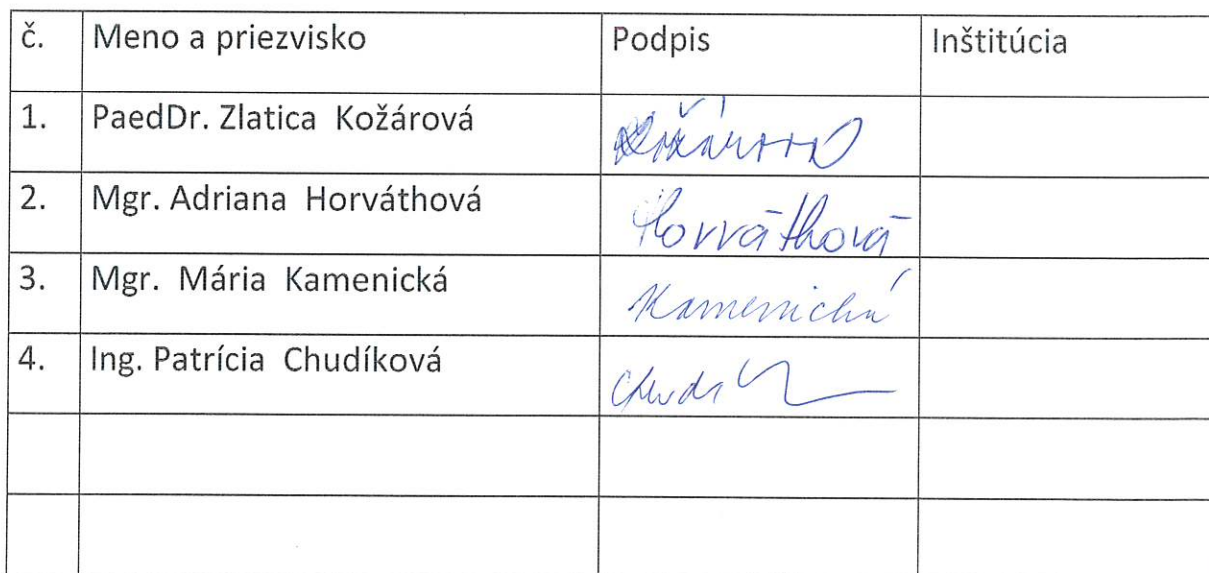 č. Meno a priezvisko Podpis Inštitúcia
1. PaedDr. Zlatica Kožárová Kožárová
2. Mgr. Adriana Horváthová Horváthová
3. Mgr. Mária Kamenická Kamenická
4. Ing. Patrícia Chudíková